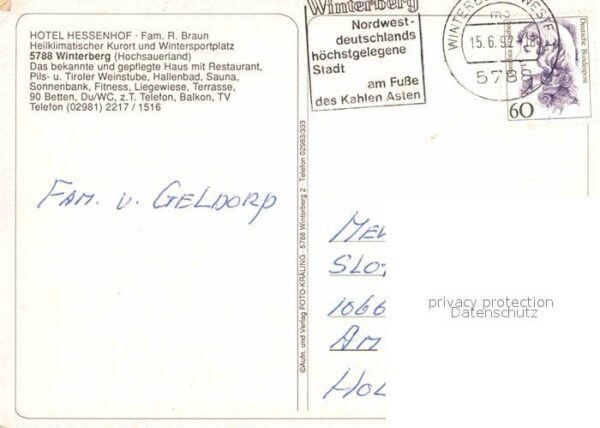 HOTEL HESSENHOF · Fam. R. Braun
Heilklimatischer Kurort und Wintersportplatz
5788 Winterberg (Hochsauerland)
Das bekannte und gepflegte Haus mit Restaurant,
Pils- u. Tiroler Weinstube, Hallenbad, Sauna,
Sonnenbank, Fitness, Liegewiese, Terrasse,
90 Betten, Du/WC, z.T. Telefon, Balkon, TV
Telefon (02981) 2217 / 1516
Fam. v. GELDORP
©Aufn. und Verlag FOTO-KRÄLING · 5788 Winterberg 2 · Telefon 02983/333
Winterberg
Nordwest-
deutschlands
höchstgelegene
Stadt
am Fuße
des Kahlen Asten
WINTERBERG, WESTF
15.6.92
5788
Deutsche Bundespost
60
MEV
SLO
1066
AM
HOL
privacy protection
Datenschutz